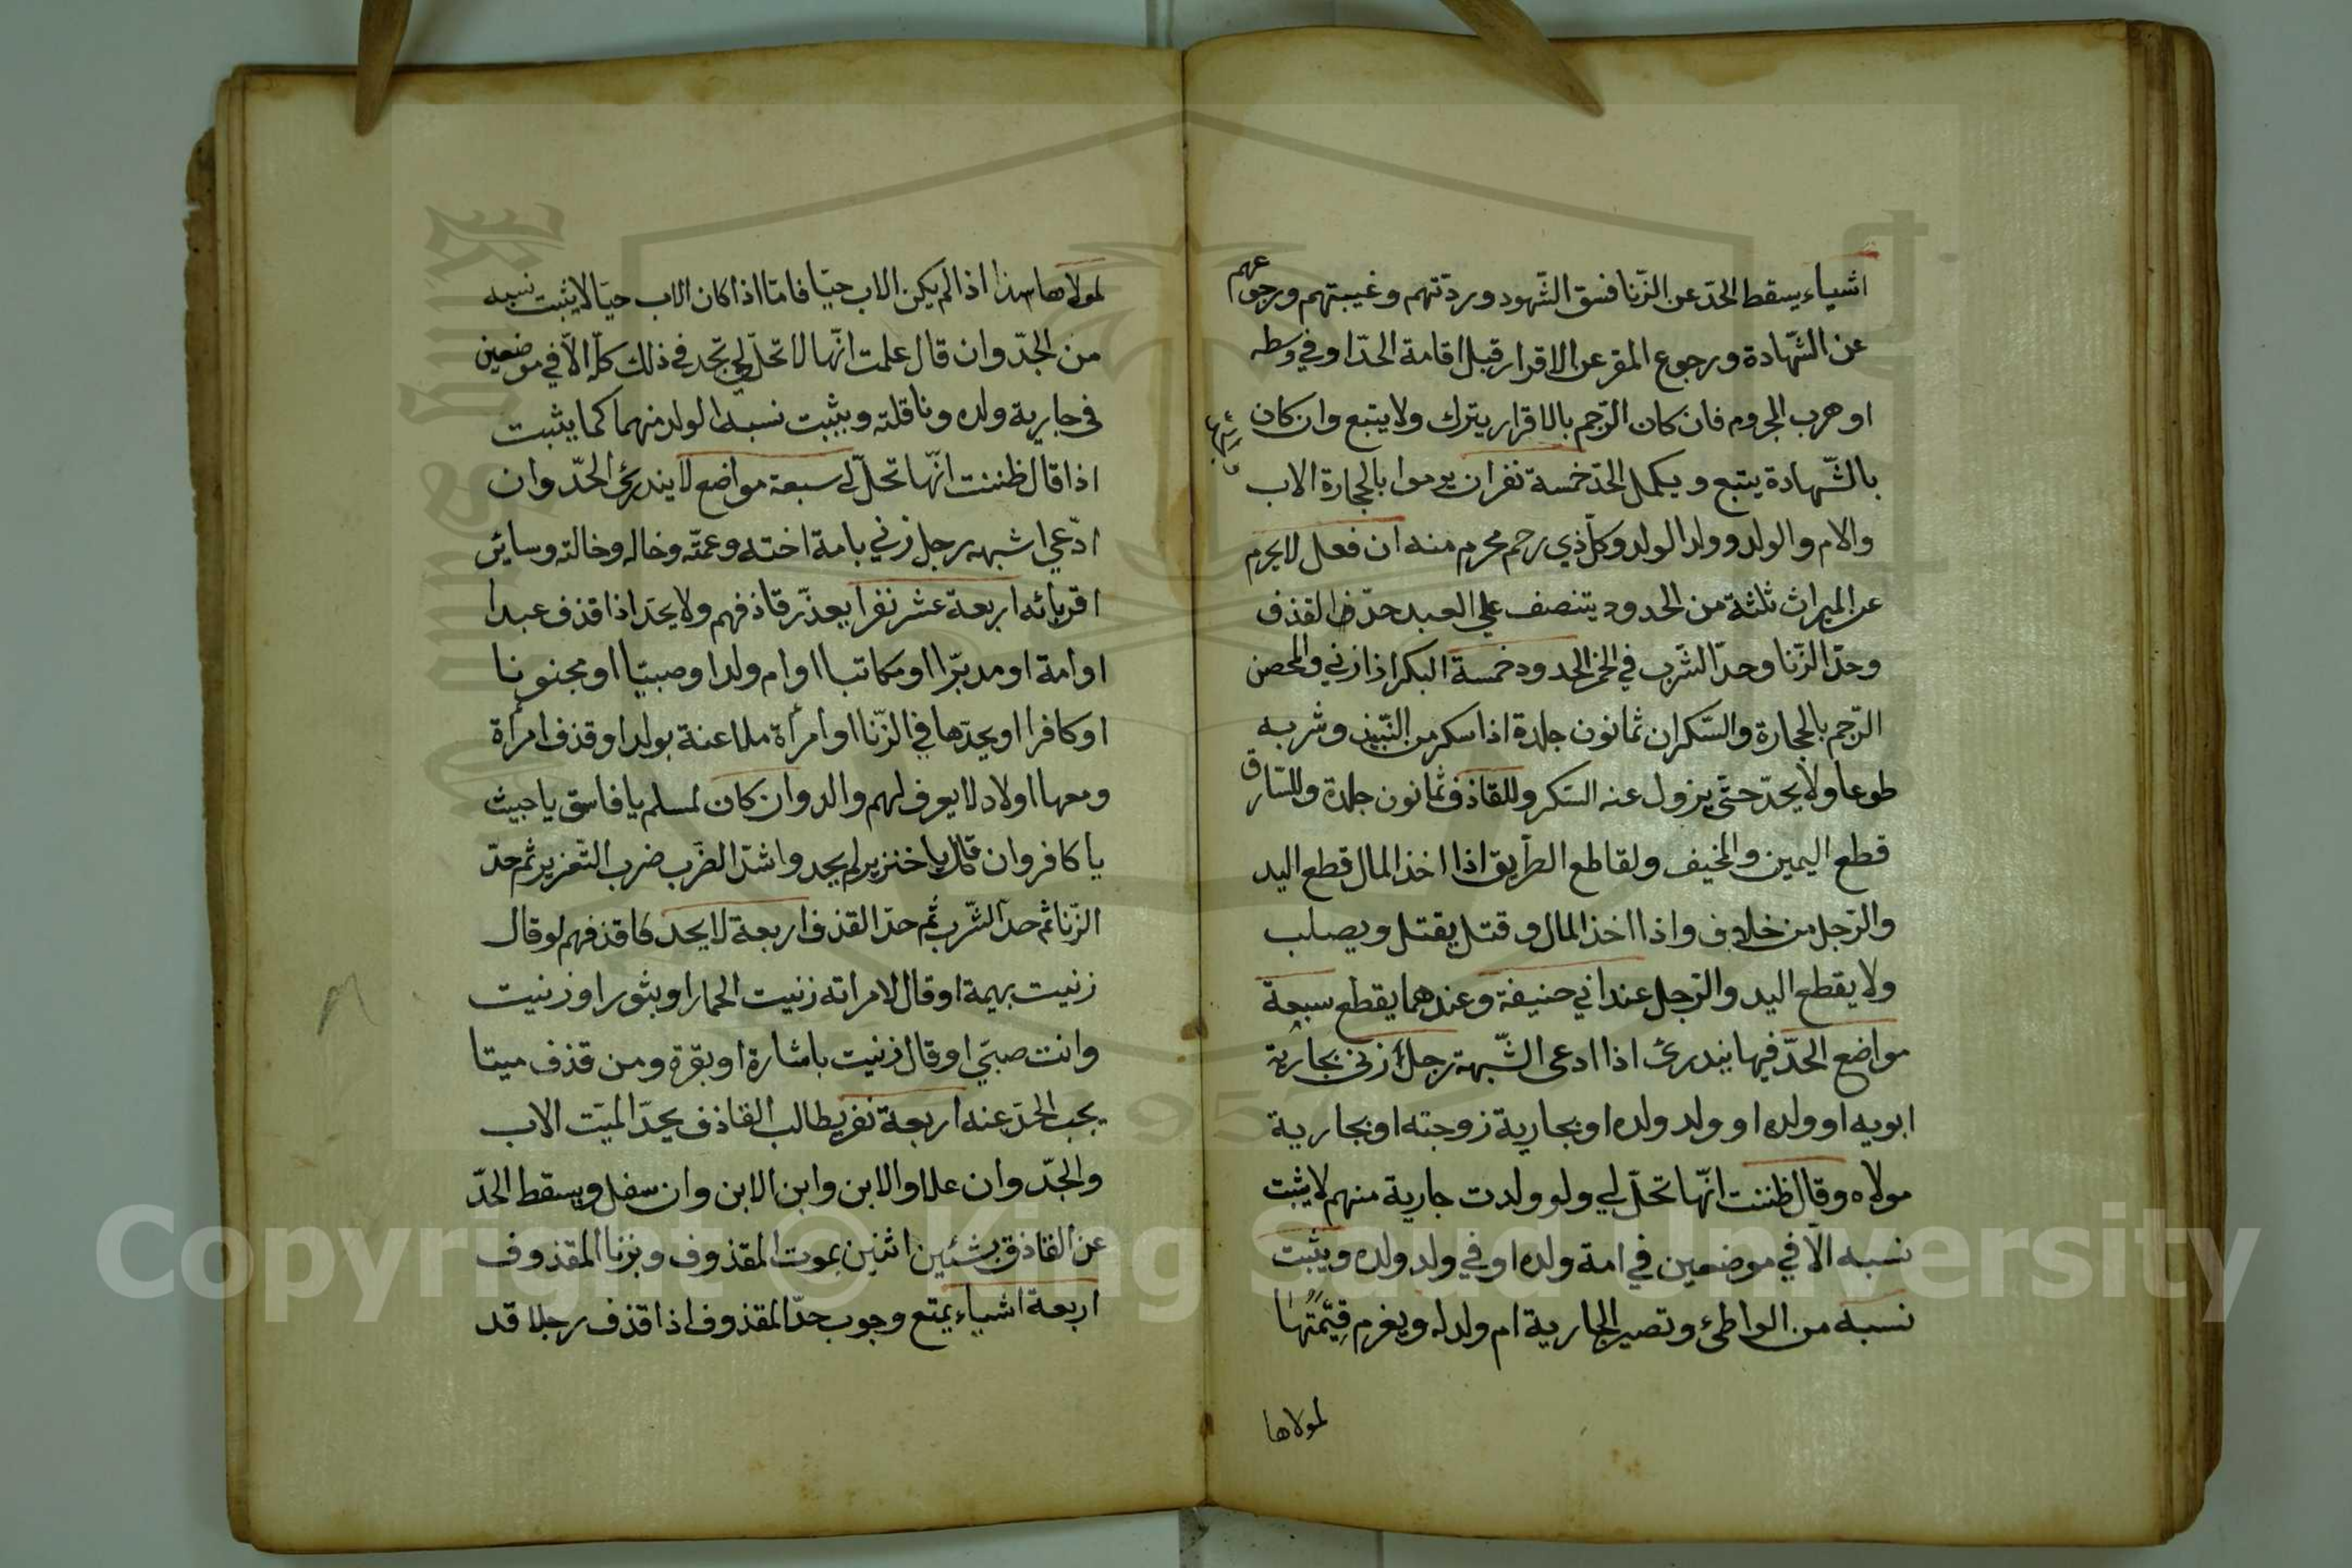 اشياء يسقط الحدّ عن الزّنا فسق الشّهود وردّتهم وغيبتهم ورجوعهم
عن الشّهادة ورجوع المقر عن الاقرار قبل اقامة الحدّ او في وسطه
او هرب المرجوم فان كان الرّجم بالاقرار يترك ولا يتبع وان كان
بالشّهادة يتبع ويكمل الحدّ خمسة نفر ان يرموا بالحجارة الاب
والام والولد وولد الولد وكلّ ذي رحم محرم منه ان فعل لا يحرم
عن الميراث ثلثة من الحدود يتنصف على العبد حدّ القذف
وحدّ الزّنا وحدّ الشّرب في الخمر الحدود خمسة البكر اذا زني والمحصن
الرّجم بالحجارة والسّكران ثمانون جلدة اذا سكر من النّبيذ وشربه
طوعا ولا يحدّ حتّى يزول عنه السّكر وللقاذف ثمانون جلدة وللسّارق
قطع اليمين والمخيف ولقاطع الطّريق اذا اخذ المال قطع اليد
والرّجل من خلاف واذا اخذ المال وقتل يقتل ويصلب
ولا يقطع اليد والرّجل عند ابي حنيفة وعندهما يقطع سبعة
مواضع الحدّ فيها يندرئ اذا ادعى الشّبهة رجل زنى بجارية
ابويه او ولده او ولد ولده او بجارية زوجته او بجارية
مولاه وقال ظننت انّها تحلّ لي ولو ولدت جارية منهم لا يثبت
نسبه الّا في موضعين في امة ولده او في ولد ولده ويثبت
نسبه من الواطئ وتصير الجارية ام ولد له ويغرم قيمتها
لمولاها
لمولاها هذا اذا لم يكن الاب حيّا فامّا اذا كان الاب حيّا لا يثبت نسبه
من الجدّ وان قال علمت انّها لا تحلّ لي تحد في ذلك كلّه الّا في موضعين
في جارية ولده وناقلته ويثبت نسب الولد منهما كما يثبت
اذا قال ظننت انّها تحلّ لي سبعة مواضع لا يندرئ الحدّ وان
ادّعي اشبهه رجل زني بامة اخته وعمّته وخاله وخالته وسائر
اقربائه اربعة عشر نفرا يعذّر قاذفهم ولا يحدّ اذا قذف عبدا
او امة او مدبّرا او مكاتبا او ام ولد او صبيّا او مجنونا
او كافرا او يحدّها في الزّنا او امرأة ملاعنة بولد او قذف امرأة
ومعها اولاد لا يعرف لهم والد وان كان لمسلم يا فاسق يا خبيث
يا كافر وان قال يا خنزير لم يحد واشدّ الضّرب ضرب التّعزير ثم حدّ
الزّنا ثم حدّ الشّرب ثم حدّ القذف اربعة لا يحد قاذفهم لو قال
زنيت بهيمة او قال لامراته زنيت الحمار او بثور او زنيت
وانت صبيّ او قال زنيت باشارة او بقرة ومن قذف ميتا
يجب الحدّ عنه اربعة نفر يطالب القاذف بحدّ الميّت الاب
والجدّ وان علا والابن وابن الابن وان سفل ويسقط الحدّ
عن القاذف بشئين اثنين بموت المقذوف وبزنا المقذوف
اربعة اشياء يمتع وجوب حدّ المقذوف اذا قذف رجلا قد
Copyright © King Saud University